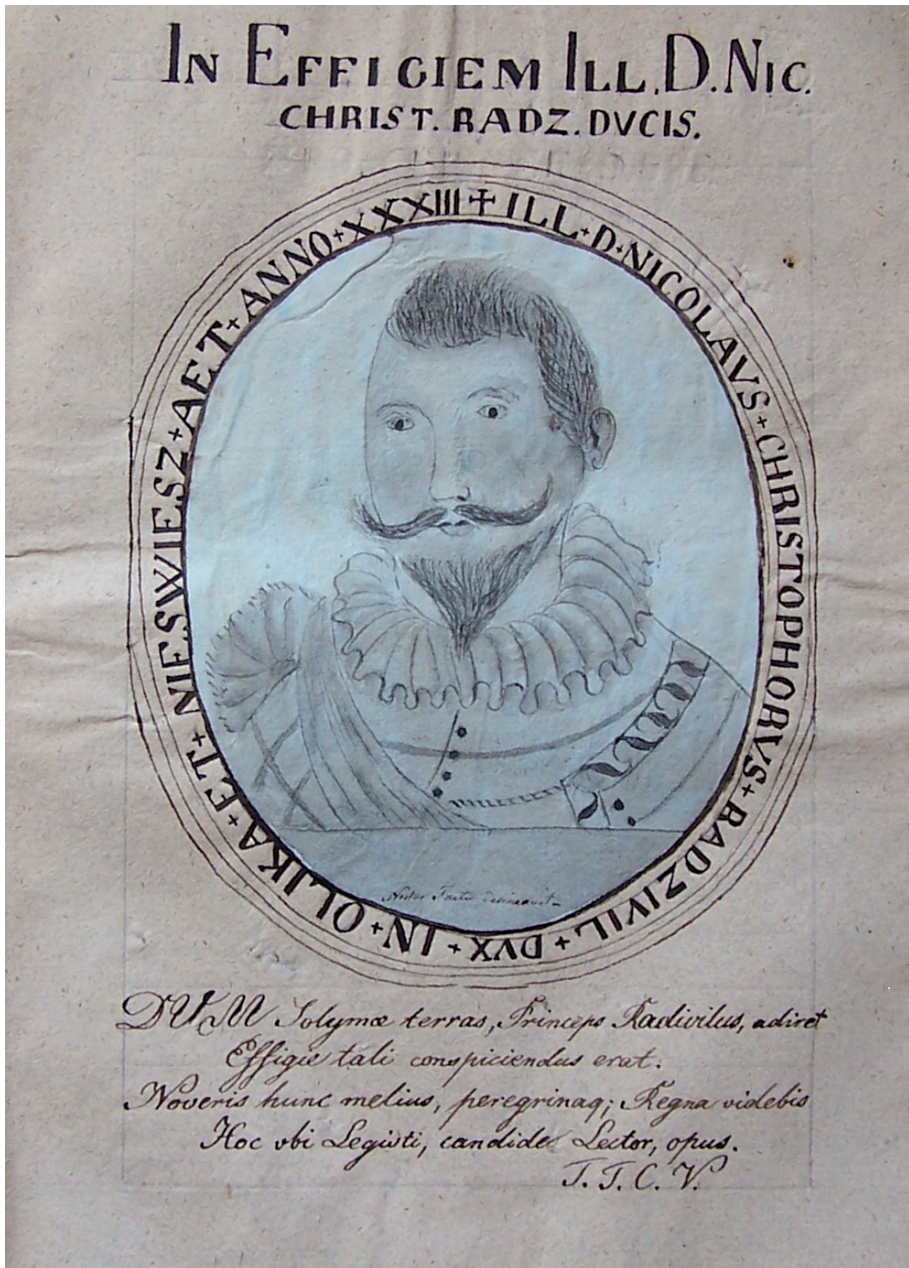 IN EFFIGIEM ILL. D. NIC.
CHRIST. RADZ. DVCIS.
ILL + D + NICOLAVS + CHRISTOPHORVS + RADZIVIL + DVX + IN + OLIKA + ET + NIESWIESZ + AET + ANNO + XXXIII +
delineavit
DUM Solymæ terras, Princeps Radivilus, adiret
Effigie tali conspiciendus erat.
Noveris hunc melius, peregrinaq; Regna videbis
Hoc vbi Legisti, candide Lector, opus.
T. T. C. V.